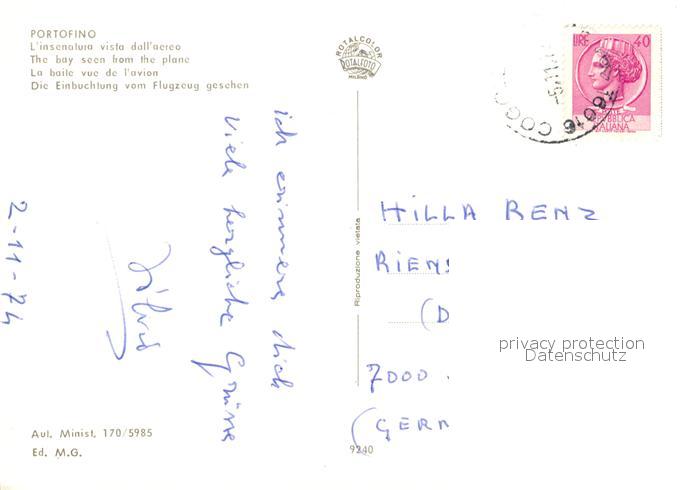 PORTOFINO
L'insenatura vista dall'aereo
The bay seen from the plane
La baite vue de l'avion
Die Einbuchtung vom Flugzeug gesehen
ROTALCOLOR
ROTALFOTO
MILANO
LIRE 40
REPUBBLICA
ITALIANA
ich erinnere dich
Viele herzliche Grüsse
2-11-74
Riproduzione vietata
HILLA RENZ
RIENS
(D
7000
(GERM
privacy protection
Datenschutz
Aut. Minist. 170/5985
Ed. M.G.
9240